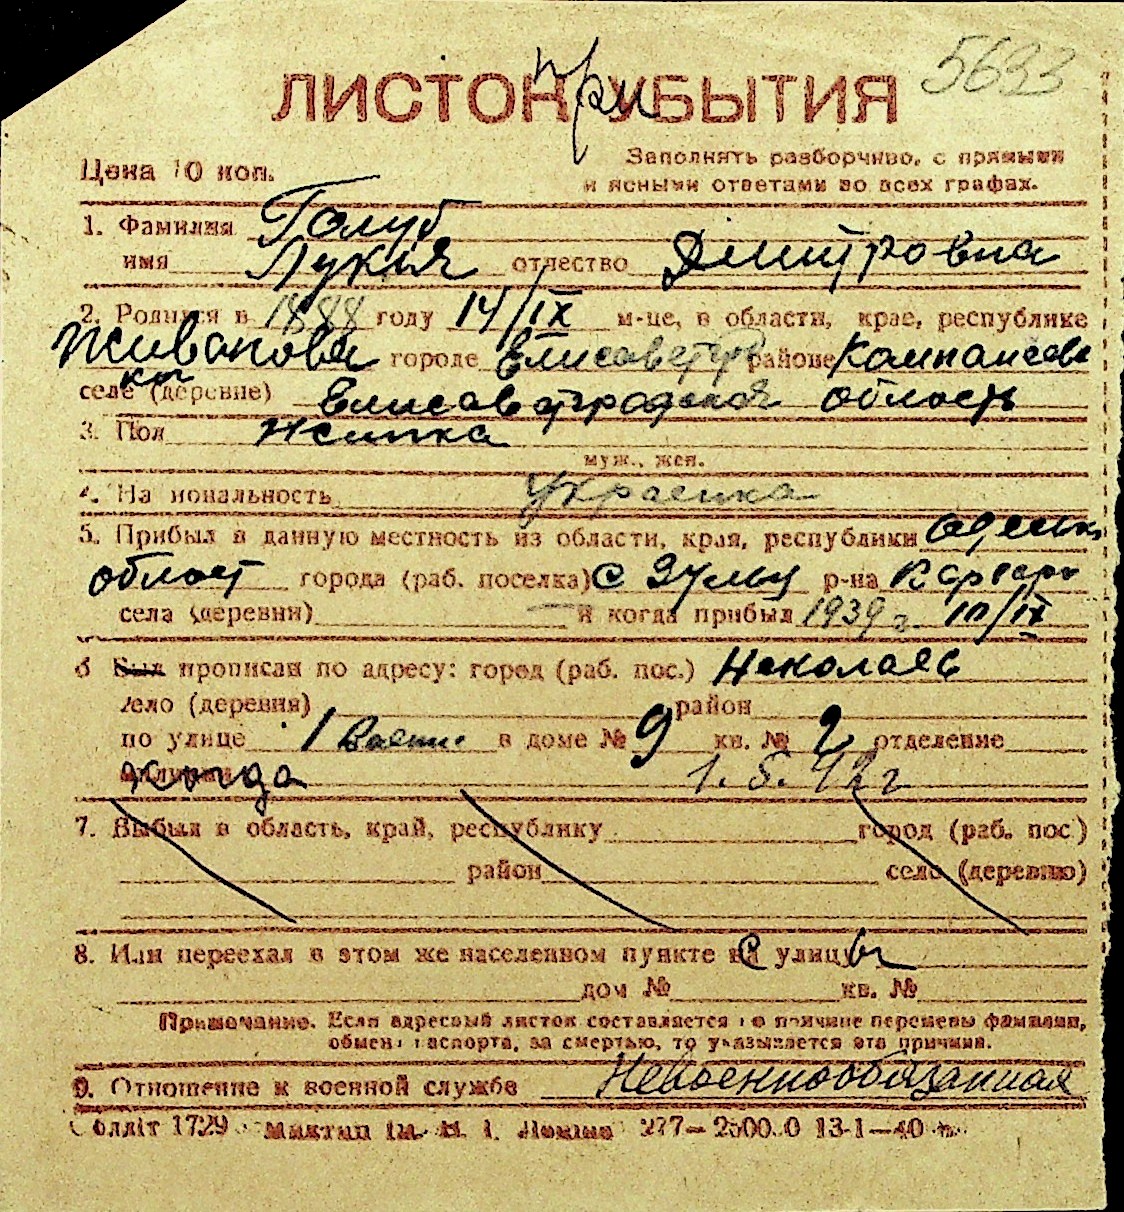 5633
ЛИСТОК УБЫТИЯ
при
Цена 10 коп.
Заполнять разборчиво, с прямыми
и ясными ответами во всех графах.
1. Фамилия Голуб
имя Лукья отчество Дмитровна
2. Родился в 1888 году 14/IX м-це, в области, крае, республике
городе районе
селе (деревне) Елисаветградская область
3. Пол жинка
муж., жен.
4. Национальность Украенка
5. Прибыл в данную местность из области, края, республики
област города (раб. поселка) с р-на
села (деревни) — и когда прибыл 1939 г.
6 Был прописан по адресу: город (раб. пос.) Николаев
село (деревня) район
по улице 1 Воен. в доме № 9 кв. № 2 отделение
милиции когда 1.5.42 г
7. Выбыл в область, край, республику город (раб. пос.)
район село (деревню)
8. Или переехал в этом же населенном пункте с улицы
дом № кв. №
Примечание. Если адресный листок составляется по причине перемены фамилии,
обмена паспорта, за смертью, то указывается эта причина.
9. Отношение к военной службе Невоеннообязанная
1729 Ленина 277—2500.0 13-1—40